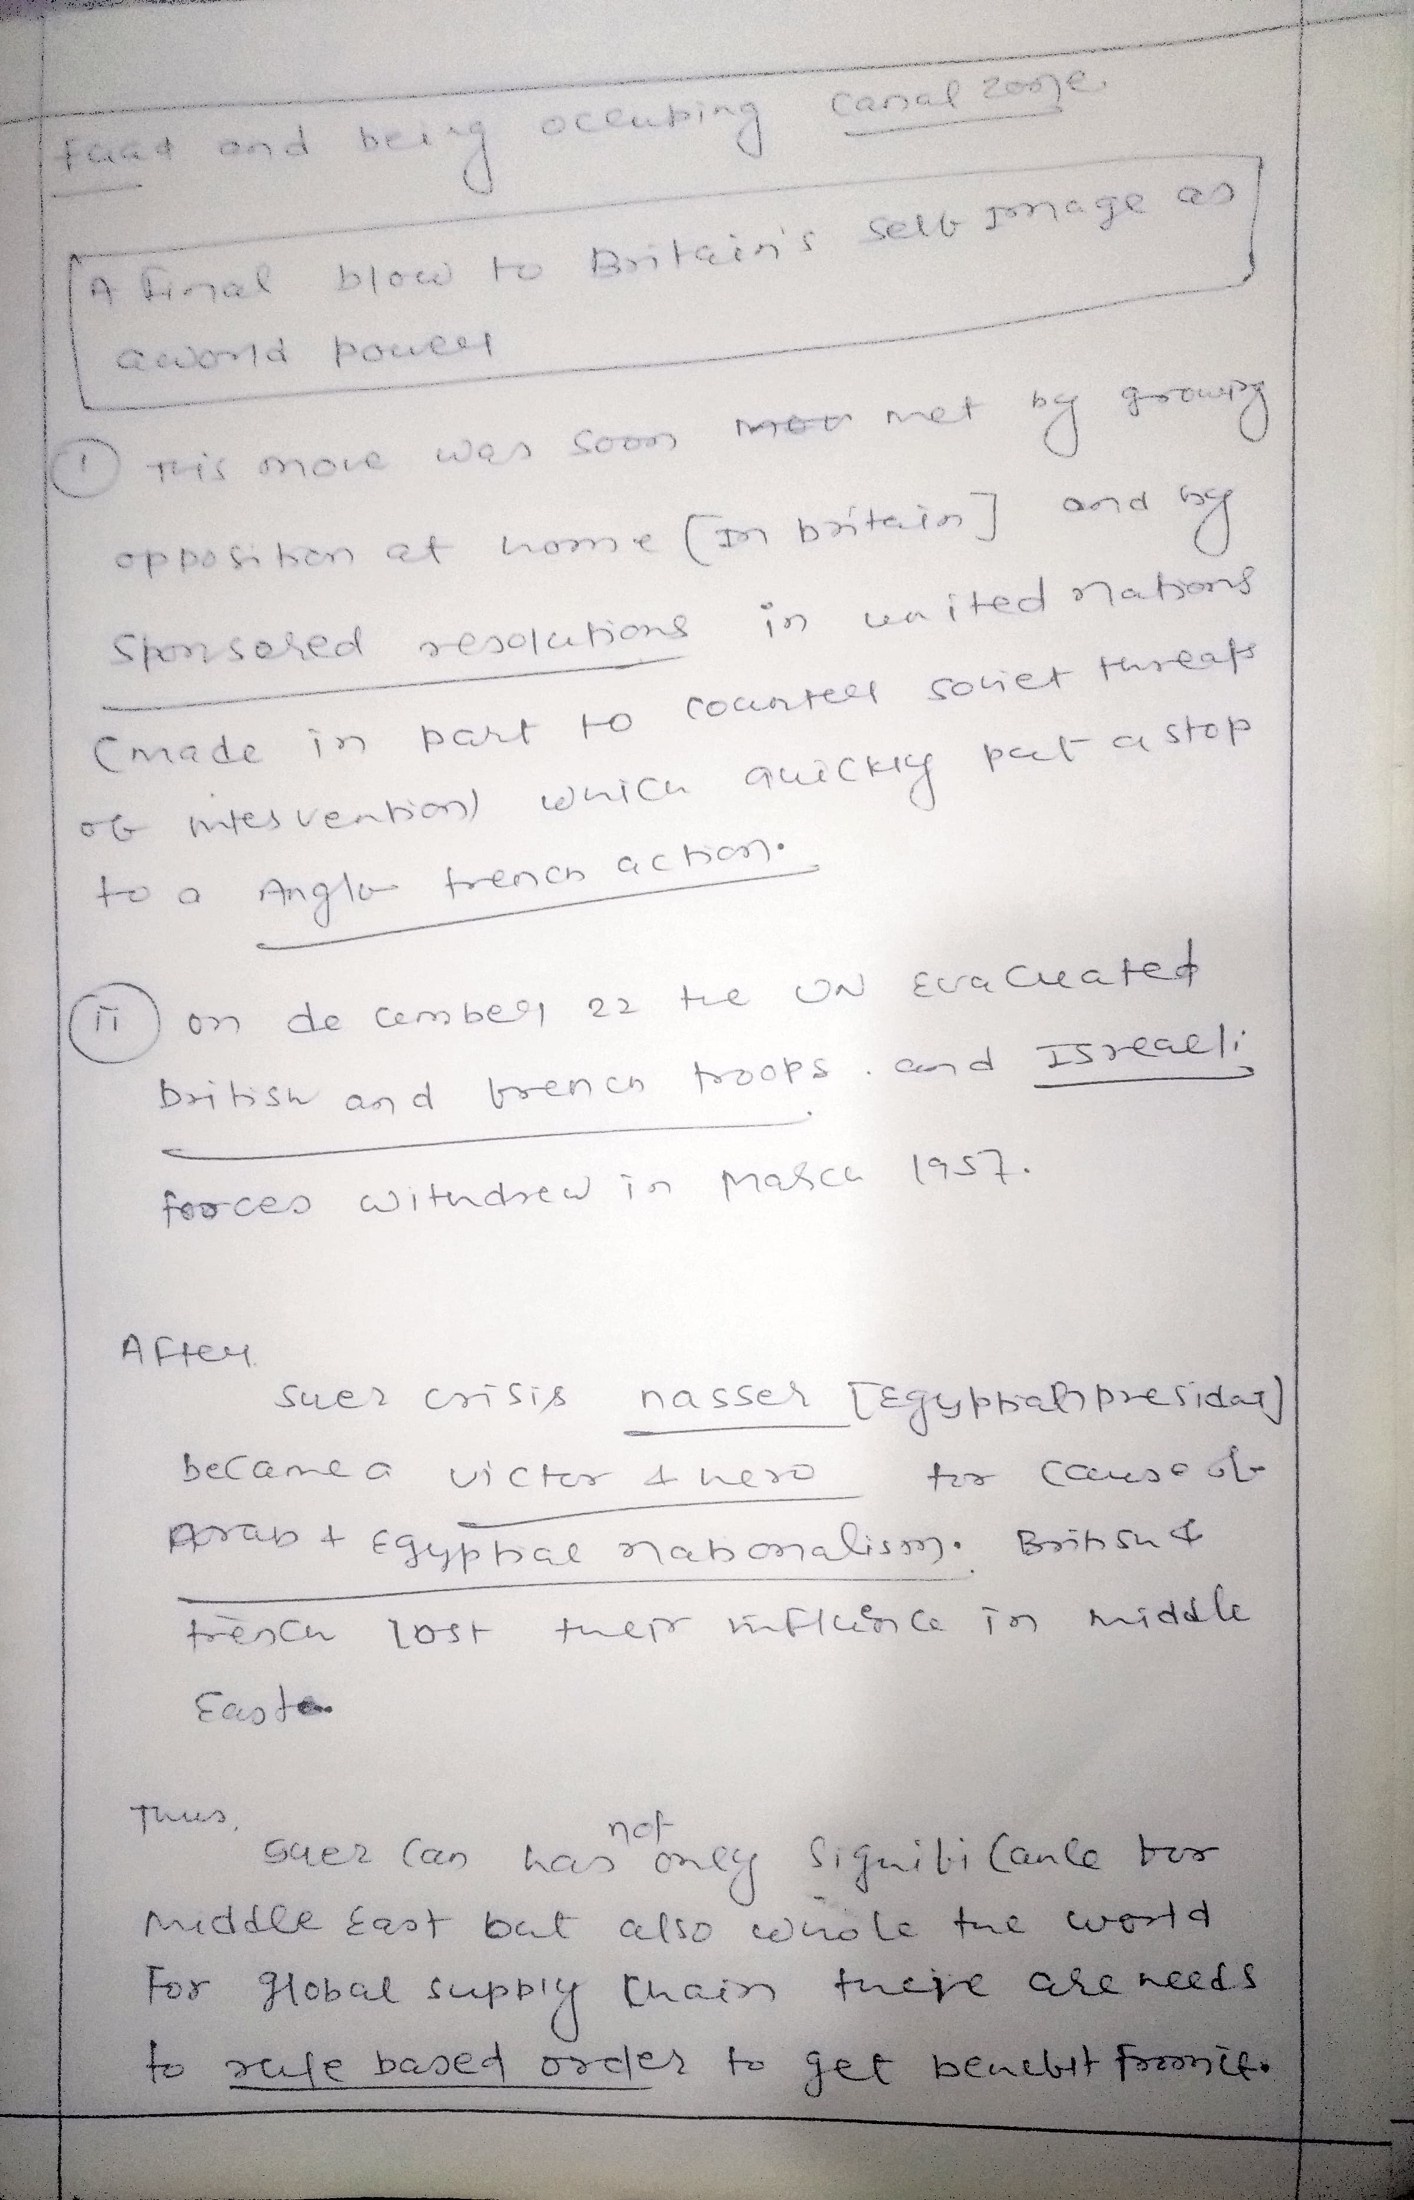 Fuad and being occuping canal zone.
A final blow to Britain's self image as
a world power
(i) This move was soon met by growing
opposition at home [In britain] and by
sponsored resolutions in united nations
(made in part to counter soviet threats
of intervention) which quickly put a stop
to a Anglo french action.
(ii) on december 22 the UN Evacuated
british and french troops. and Isreaeli
forces withdrew in March 1957.
After
suez crisis nasser [Egyptian presidat]
became a victor & hero for cause of
Arab & Egyptial nationalism. British &
french lost their influence in middle
East
Thus,
suez can has not only significance for
middle East but also whole the world
For global supply chain there are needs
to rule based order to get benefit from it.